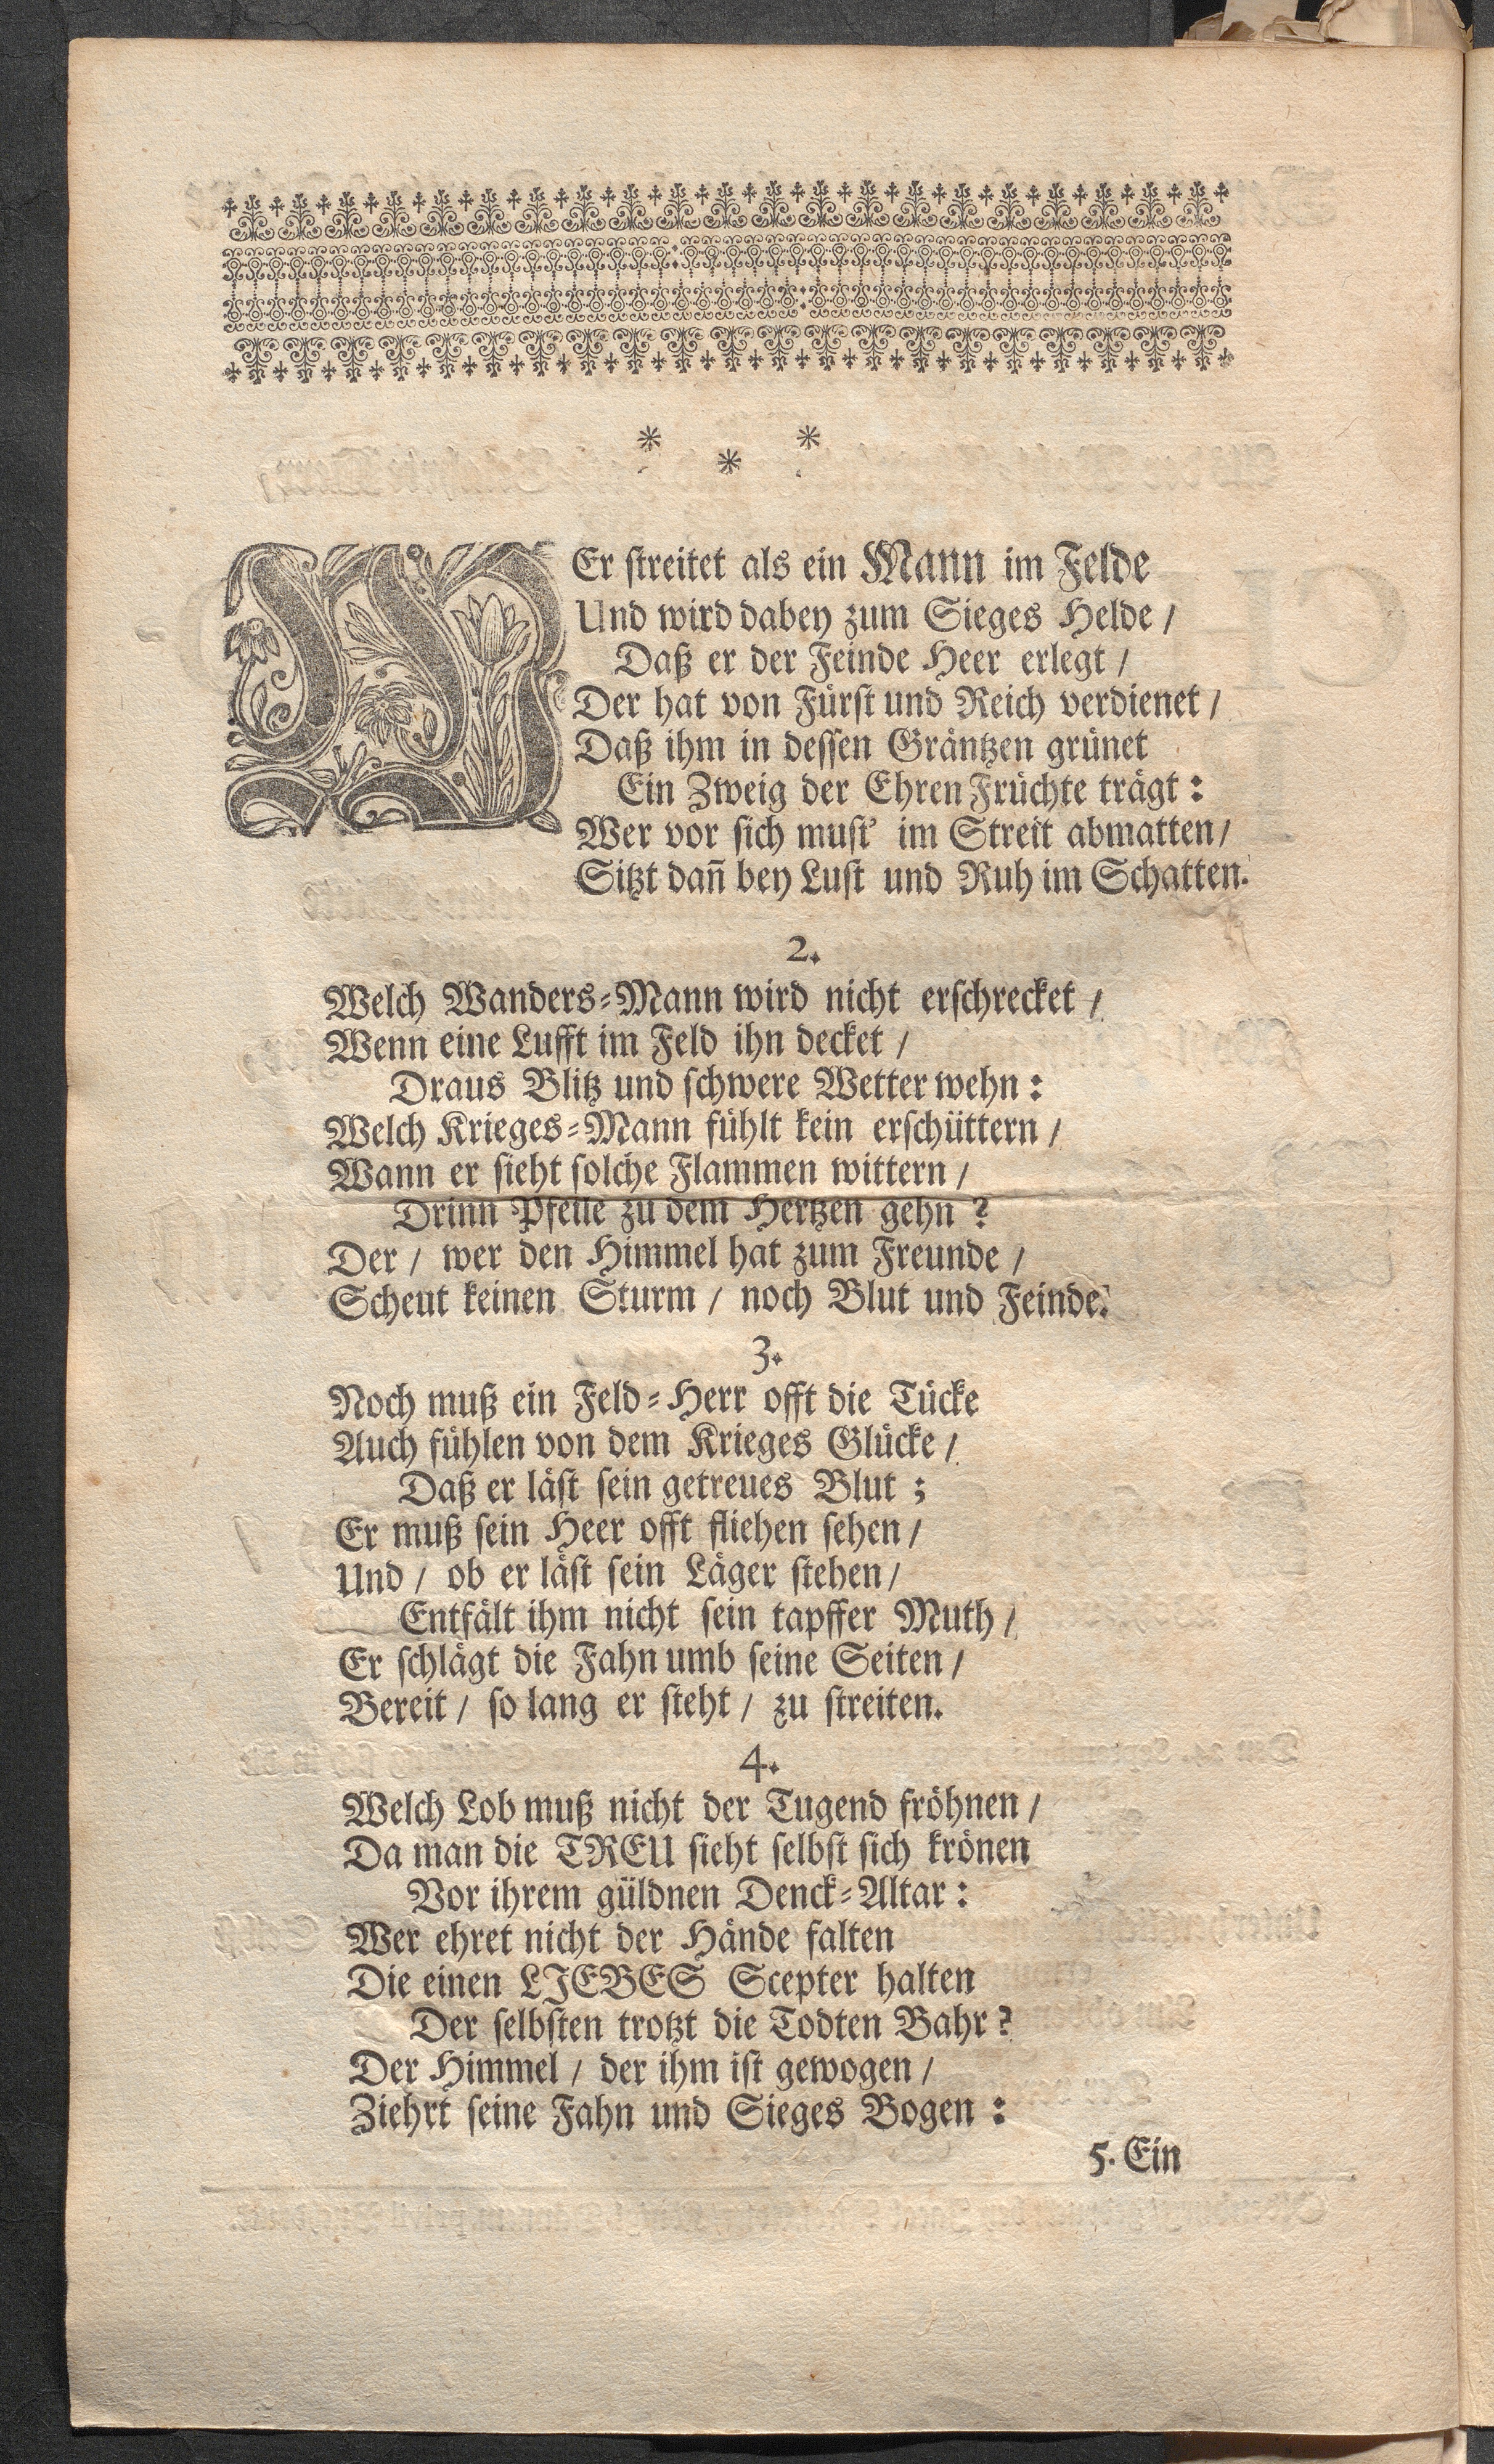 * * *
WEr streitet als ein Mann im Felde
Und wird dabey zum Sieges Helde /
Daß er der Feinde Heer erlegt /
Der hat von Fürst und Reich verdienet /
Daß ihm in dessen Gräntzen grünet
Ein Zweig der Ehren Früchte trägt:
Wer vor sich must' im Streit abmatten /
Sitzt dañ bey Lust und Ruh im Schatten.
2.
Welch Wanders-Mann wird nicht erschrecket /
Wenn eine Lufft im Feld ihn decket /
Draus Blitz und schwere Wetter wehn:
Welch Krieges-Mann fühlt kein erschüttern /
Wann er sieht solche Flammen wittern /
Drinn Pfeile zu dem Hertzen gehn?
Der / wer den Himmel hat zum Freunde /
Scheut keinen Sturm / noch Blut und Feinde.
3.
Noch muß ein Feld-Herr offt die Tücke
Auch fühlen von dem Krieges Glücke /
Daß er läst sein getreues Blut;
Er muß sein Heer offt fliehen sehen /
Und / ob er läst sein Läger stehen /
Entfält ihm nicht sein tapffer Muth /
Er schlägt die Fahn umb seine Seiten /
Bereit / so lang er steht / zu streiten.
4.
Welch Lob muß nicht der Tugend fröhnen /
Da man die TREU sieht selbst sich krönen
Vor ihrem güldnen Denck-Altar:
Wer ehret nicht der Hände falten
Die einen LJEBES Scepter halten
Der selbsten trotzt die Todten Bahr?
Der Himmel / der ihm ist gewogen /
Ziehrt seine Fahn und Sieges Bogen:
5. Ein